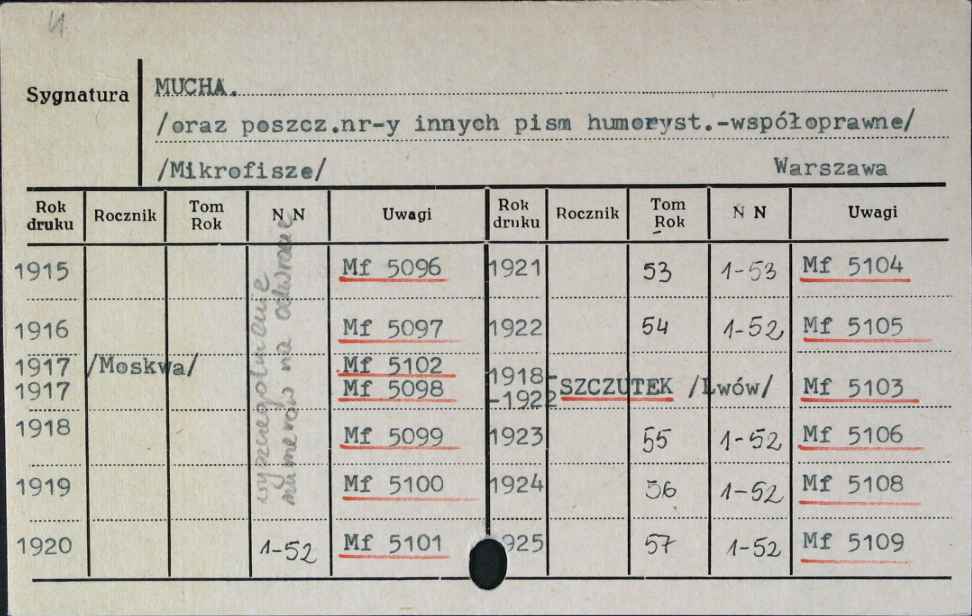 Sygnatura
MUCHA.
/oraz poszcz.nr-y innych pism humoryst.-współoprawne/
/Mikrofisze/ Warszawa
Rok druku Rocznik Tom Rok N N Uwagi Rok druku Rocznik Tom Rok N N Uwagi
wyszczególnienie
numerów na odwrocie
1915 Mf 5096 1921 53 1-53 Mf 5104
1916 Mf 5097 1922 54 1-52 Mf 5105
1917 /Moskwa/ Mf 5102
1917 Mf 5098
1918-
-1922 SZCZUTEK /Lwów/ Mf 5103
1918 Mf 5099 1923 55 1-52 Mf 5106
1919 Mf 5100 1924 56 1-52 Mf 5108
1920 1-52 Mf 5101 925 57 1-52 Mf 5109